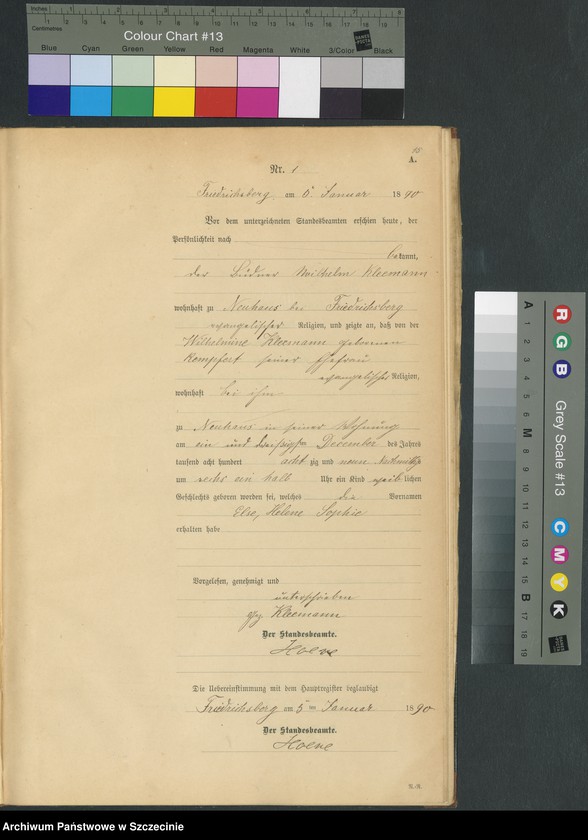 Inches
Centimetres
Colour Chart #13
Blue Cyan Green Yellow Red Magenta White 3/Color Black
15
A.
Nr. 1
Friedrichsberg am 5 Januar 1890
Vor dem unterzeichneten Standesbeamten erschien heute, der
Persönlichkeit nach
bekannt,
der Büdner Wilhelm Kleemann
wohnhaft zu Neuhaus bei Friedrichsberg
evangelischer Religion, und zeigte an, daß von der
Wilhelmine Kleemann geborenen
Kempfert seiner Ehefrau
evangelischer Religion,
wohnhaft bei ihm
zu Neuhaus in seiner Wohnung
am ein und dreißigsten December des Jahres
tausend acht hundert acht zig und neun Nachmittags
um sechs ein halb Uhr ein Kind weiblichen
Geschlechts geboren worden sei, welches die Vornamen
Else, Helene Sophie
erhalten habe
Vorgelesen, genehmigt und
unterschrieben
gez. Kleemann
Der Standesbeamte.
Hoene
Die Uebereinstimmung mit dem Hauptregister beglaubigt
Friedrichsberg am 5ten Januar 1890
Der Standesbeamte.
Hoene
A 1 2 3 4 5 6 M 8 9 10 11 12 13 14 15 B 17 18 19
R G B
Grey Scale #13
C M Y K
Archiwum Państwowe w Szczecinie